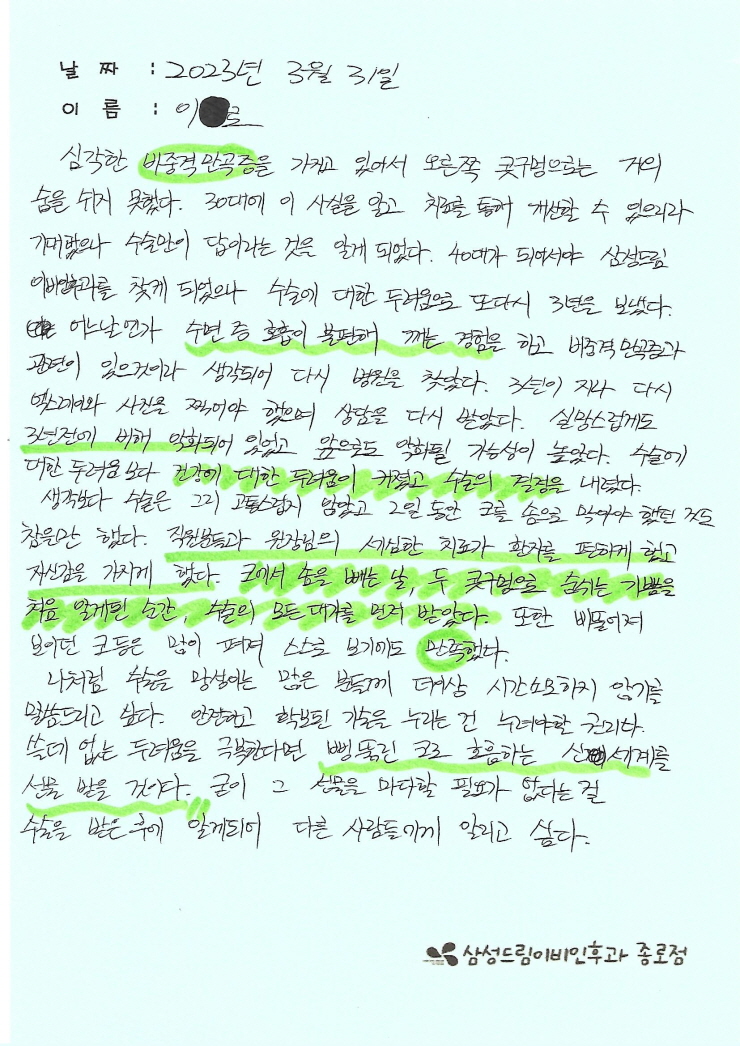 날 짜 : 2023년 3월 31일
이 름 : 이 로
심각한 비중격만곡증을 가지고 있어서 오른쪽 콧구멍으로는 거의
숨을 쉬지 못했다. 30대에 이 사실을 알고 치료를 통해 개선할 수 있으리라
기대했으나 수술만이 답이라는 것을 알게 되었다. 40대가 되어서야 삼성드림
이비인후과를 찾게 되었으나 수술에 대한 두려움으로 또다시 3년을 보냈다.
어느날인가 수면 중 호흡이 불편해 깨는 경험을 하고 비중격만곡증과
관련이 있으것이라 생각되어 다시 병원을 찾았다. 3년이 지나 다시
엑스레이와 사진을 찍어야 했으며 상담을 다시 받았다. 실망스럽게도
3년전에 비해 악화되어 있었고 앞으로도 악화될 가능성이 높았다. 수술에
대한 두려움보다 건강에 대한 두려움이 커졌고 수술의 결정을 내렸다.
생각보다 수술은 그리 고통스럽지 않았고 2일 동안 코를 솜으로 막아야 했던 것도
참을만 했다. 직원분들과 원장님의 세심한 치료가 환자를 편하게 했고
자신감을 가지게 했다. 코에서 솜을 빼는 날, 두 콧구멍으로 숨쉬는 기쁨을
처음 알게된 순간, 수술의 모든 대가를 먼저 받았다. 또한 삐뚤어져
보이던 콧등은 많이 펴져 스스로 보기에도 만족했다.
나처럼 수술을 망설이는 많은 분들께 더이상 시간소요하지 않기를
말씀드리고 싶다. 안전하고 확보된 기술을 누리는 건 누려야할 권리다.
쓸데 없는 두려움을 극복한다면 뻥 뚫린 코로 호흡하는 신세계를
선물 받을 것이다. 굳이 그 선물을 마다할 필요가 없다는 걸
수술을 받은 후에 알게되어 다른 사람들에게 알리고 싶다.
삼성드림이비인후과 종로점